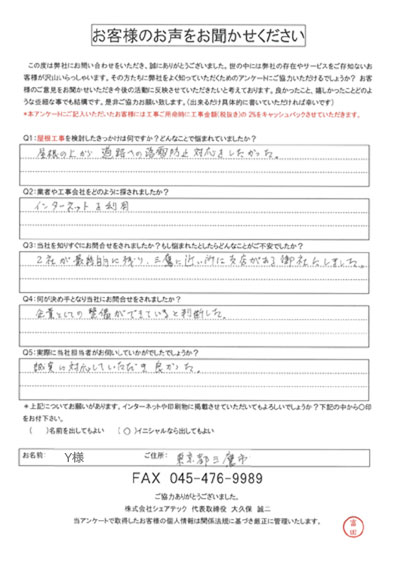 お客様のお声をお聞かせください
この度は弊社にお問い合わせをいただき、誠にありがとうございました。世の中には弊社の存在やサービスをご存知ないお
客様が沢山いらっしゃいます。その方たちに弊社をよく知っていただくためのアンケートにご協力いただけるでしょうか？ お客
様のご意見をお聞かせいただき今後の活動に反映させていただきたいと考えております。良かったこと、嬉しかったことどのよ
うな些細な事でも結構です。是非ご協力お願い致します。（出来るだけ具体的に書いていただければ幸いです）
*本アンケートにご記入いただいたお客様には工事ご依頼時に工事金額(税抜き)の2%をキャッシュバックさせていただきます。
Q1:屋根工事を検討したきっかけは何ですか？どんなことで悩まれていましたか？
屋根の上から道路への落雪防止対応をしたかった。
Q2:業者や工事会社をどのように探されましたか？
インターネットを利用
Q3:当社を知りすぐにお問合せをされましたか？もし悩まれたとしたらどんなことがご不安でしたか？
2社が最終的に残り、三鷹に近い所に支店がある御社にしました。
Q4:何が決め手となり当社にお問合せをされましたか？
企業としての整備ができていると判断した。
Q5:実際に当社担当者がお伺いしていかがでしたでしょうか？
誠実に対応していただき良かった。
*上記についてお願いがあります。インターネットや印刷物に掲載させていただいてもよろしいでしょうか？下記の中から〇印
をお付下さい。
（　）名前を出してもよい （〇）イニシャルなら出してもよい
お名前: Y様 ご住所: 東京都三鷹市
FAX 045-476-9989
ご協力ありがとうございました。
株式会社シェアテック 代表取締役 大久保 誠二
当アンケートで取得したお客様の個人情報は関係法規に基づき厳正に管理いたします。
富田